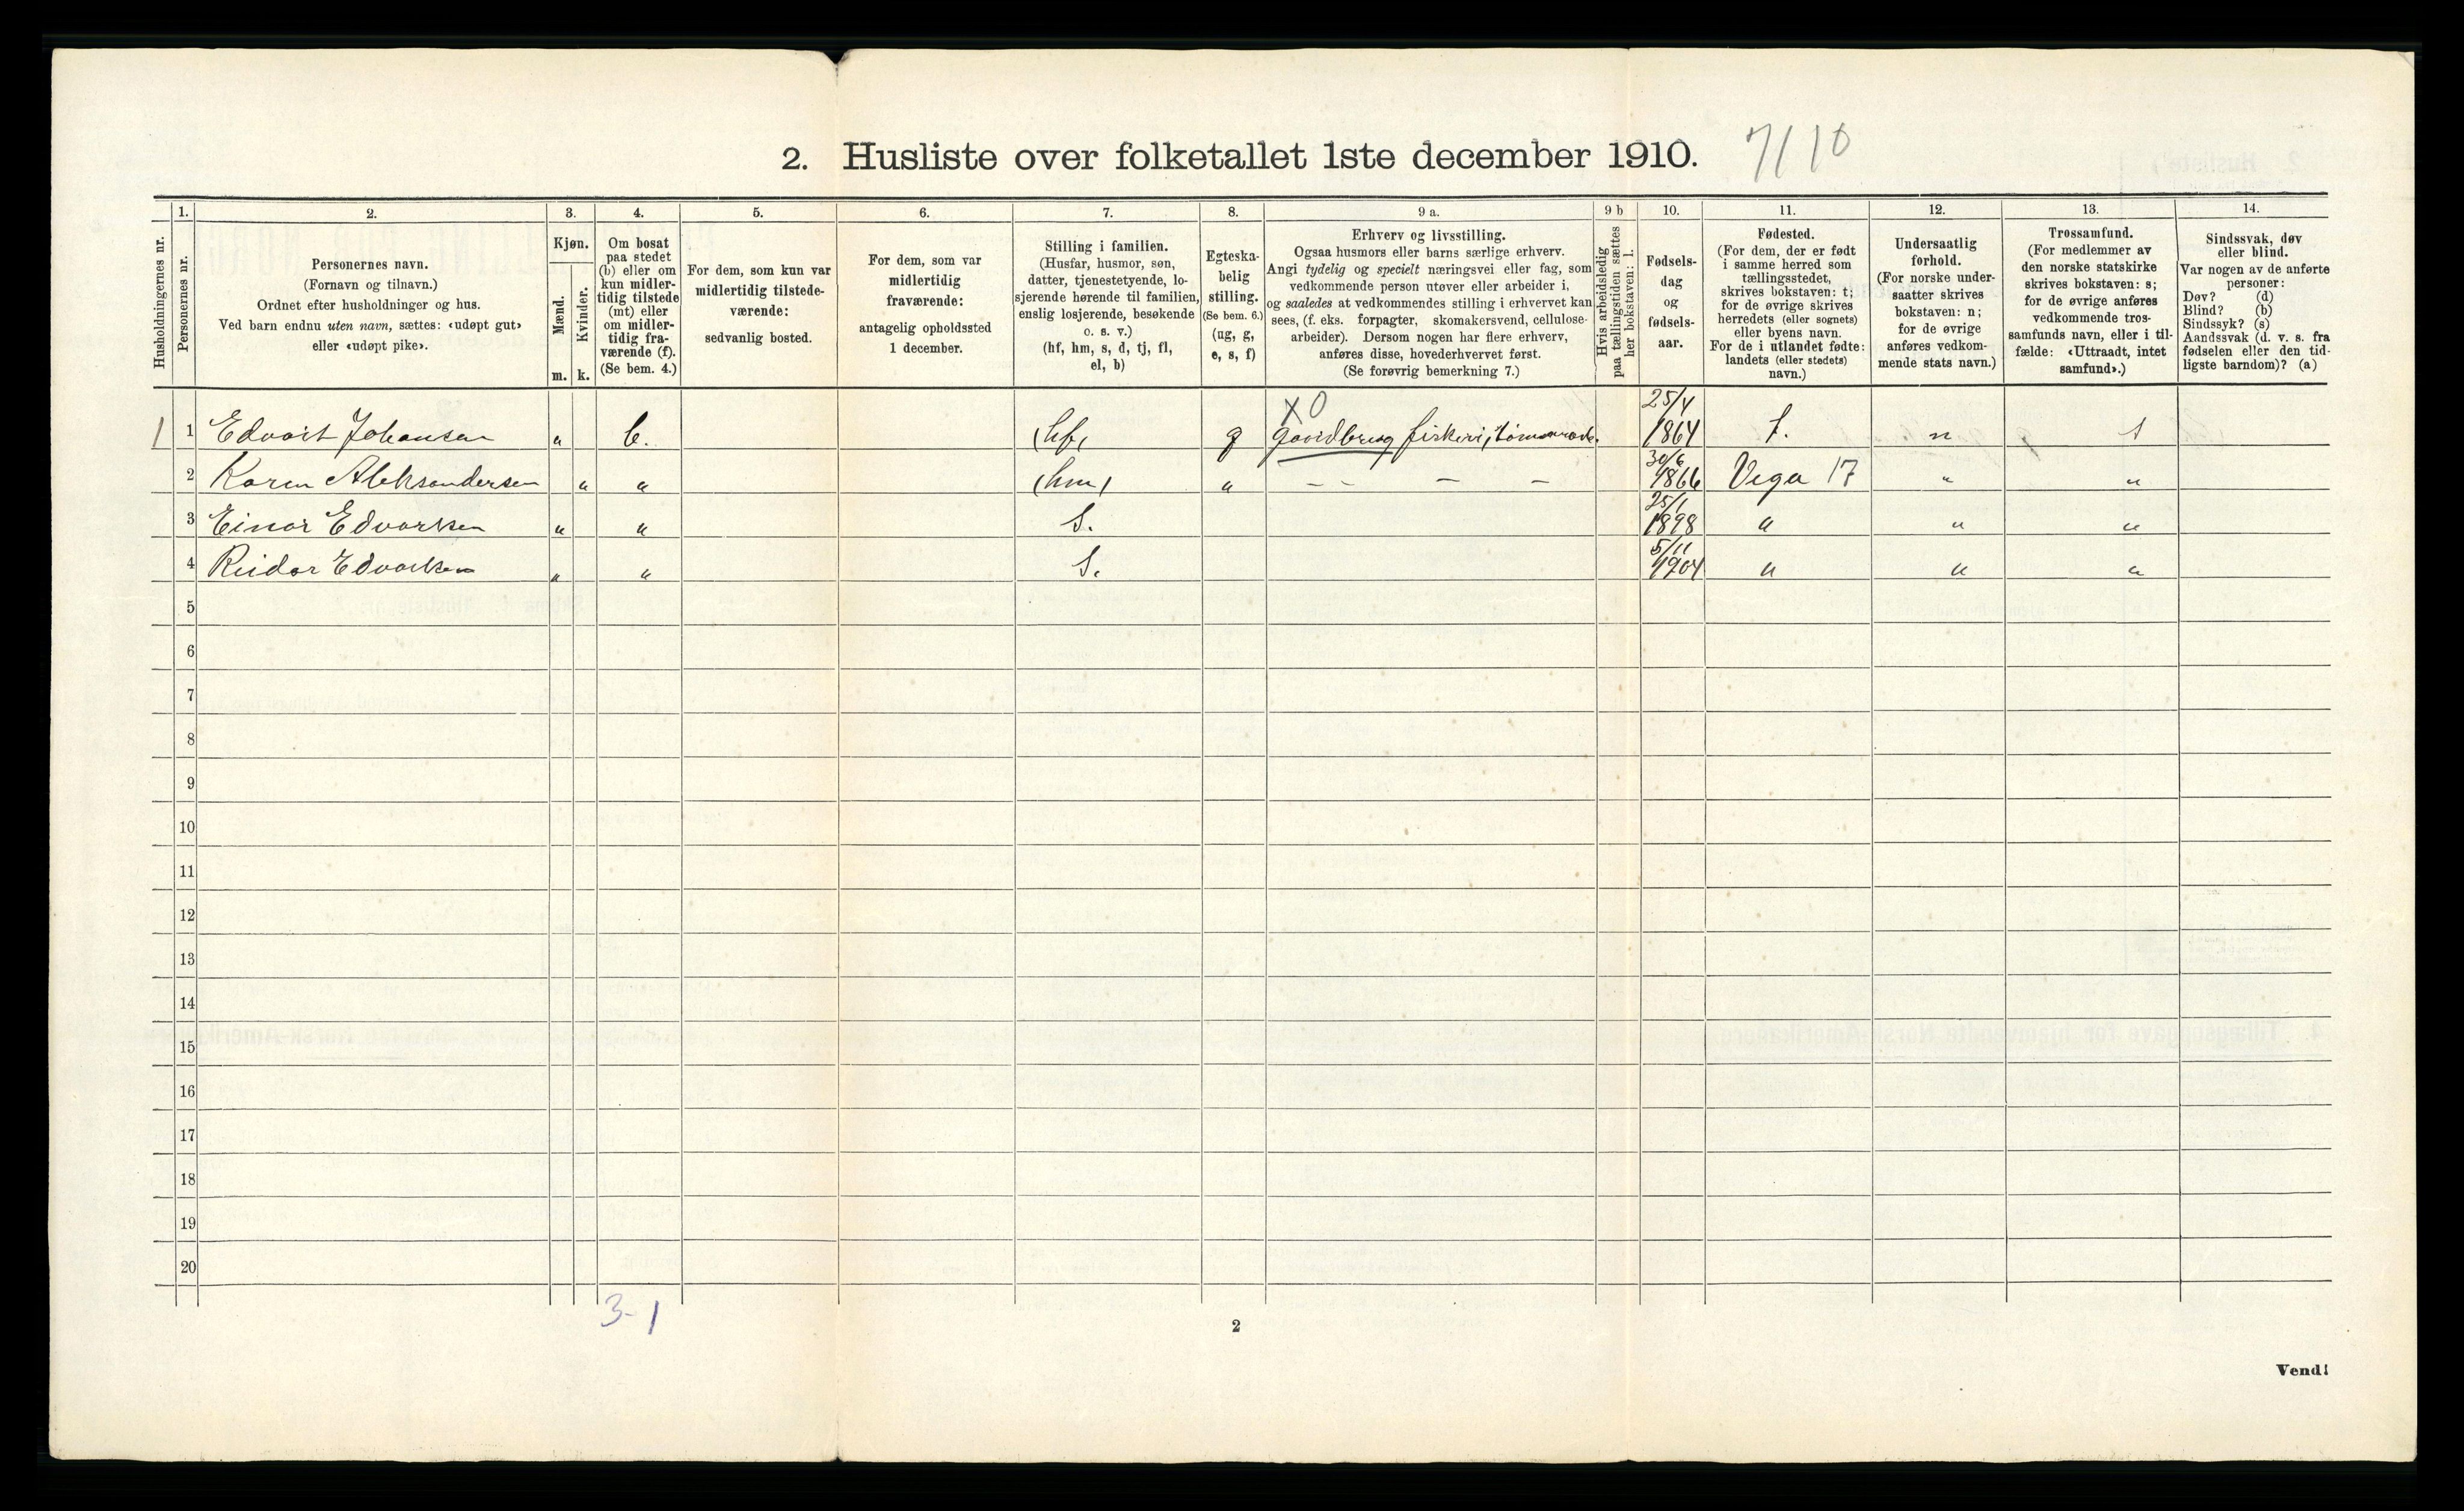 2. Husliste over folketallet 1ste december 1910. 7/10
Husholdningernes nr.
1.
Personernes nr.
2.
Personernes navn.
(Fornavn og tilnavn.)
Ordnet efter husholdninger og hus.
Ved barn endnu uten navn, sættes: «udøpt gut»
eller «udøpt pike».
3.
Kjøn.
Mænd.
Kvinder.
m. k.
4.
Om bosat
paa stedet
(b) eller om
kun midler-
tidig tilstede
(mt) eller
om midler-
tidig fra-
værende (f).
(Se bem. 4.)
5.
For dem, som kun var
midlertidig tilstede-
værende:
sedvanlig bosted.
6.
For dem, som var
midlertidig
fraværende:
antagelig opholdssted
1 december.
7.
Stilling i familien.
(Husfar, husmor, søn,
datter, tjenestetyende, lo-
sjerende hørende til familien,
enslig losjerende, besøkende
o. s. v.)
(hf, hm, s, d, tj, fl,
el, b)
8.
Egteska-
belig
stilling.
(Se bem. 6.)
(ug, g,
e, s, f)
9 a.
Erhverv og livsstilling.
Ogsaa husmors eller barns særlige erhverv.
Angi tydelig og specielt næringsvei eller fag, som
vedkommende person utøver eller arbeider i,
og saaledes at vedkommendes stilling i erhvervet kan
sees, (f. eks. forpagter, skomakersvend, cellulose-
arbeider). Dersom nogen har flere erhverv,
anføres disse, hovederhvervet først.
(Se forøvrig bemerkning 7.)
9 b
Hvis arbeidsledig
paa tællingstiden sættes
her bokstaven: l.
10.
Fødsels-
dag
og
fødsels-
aar.
11.
Fødested.
(For dem, der er født
i samme herred som
tællingsstedet,
skrives bokstaven: t;
for de øvrige skrives
herredets (eller sognets)
eller byens navn.
For de i utlandet fødte:
landets (eller stedets)
navn.)
12.
Undersaatlig
forhold.
(For norske under-
saatter skrives
bokstaven: n;
for de øvrige
anføres vedkom-
mende stats navn.)
13.
Trossamfund.
(For medlemmer av
den norske statskirke
skrives bokstaven: s;
for de øvrige anføres
vedkommende tros-
samfunds navn, eller i til-
fælde: «Uttraadt, intet
samfund».)
14.
Sindssvak, døv
eller blind.
Var nogen av de anførte
personer:
Døv? (d)
Blind? (b)
Sindssyk? (s)
Aandssvak (d. v. s. fra
fødselen eller den tid-
ligste barndom)? (a)
X0 25/4
1 1 Edvart Johansen " b. (hf) g gaardbrug fiskeri, 1864 t. n s
30/6
2 Karen Aleksandersen " " (hm) " – – – – 1866 Vega 17 " "
25/1
3 Einar Edvartsen " " S. 1898 " " "
5/11
4 Reidar Edvartsen " " S. 1904 " " "
5
6
7
8
9
10
11
12
13
14
15
16
17
18
19
20
3-1
2
Vend!